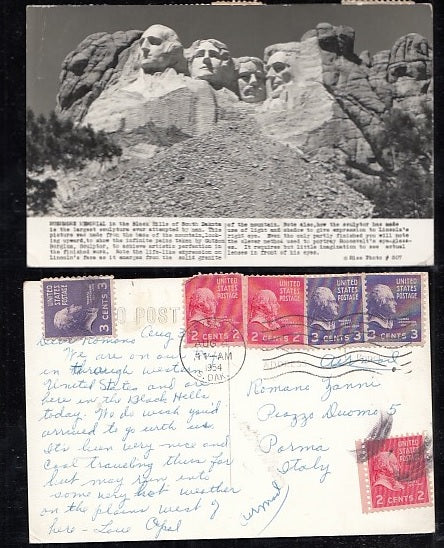 RUSHMORE MEMORIAL in the Black Hills of South Dakota
is the largest sculpture ever attempted by man. This
picture was made from the base of the mountain, look-
ing upward, to show the infinite pains taken by Gutzon
Borglum, Sculptor, to achieve artistic perfection in
the finished work. Note the life-like expression on
Lincoln's face as it emerges from the solid granite
of the mountain. Note also, how the sculptor has made
use of light and shadow to give expression to Lincoln's
right eye. Even the only partly finished you will note
the clever method used to portray Roosevelt's eye-glass-
es. It requires but little imagination to see actual
lenses in front of his eyes.
© Rise Photo # 807
UNITED STATES POSTAGE
3 CENTS 3
POST
UNITED STATES POSTAGE
2 CENTS 2
UNITED STATES POSTAGE
2 CENTS 2
UNITED STATES POSTAGE
3 CENTS 3
UNITED STATES POSTAGE
3 CENTS 3
AUG
11-AM
1954
S. DAK.
Aug 3
Dear Romano
We are on our
in through western
United States and are
here in the Black Hills
today. We do wish you'd
arrived to go with us.
It's been very nice and
cool traveling thus far
but may run into
some very hot weather
on the plains west of
here - Love Opal
Air Mail
Romano Zanni
Piazza Duomo 5
Parma
Italy
UNITED STATES POSTAGE
2 CENTS 2